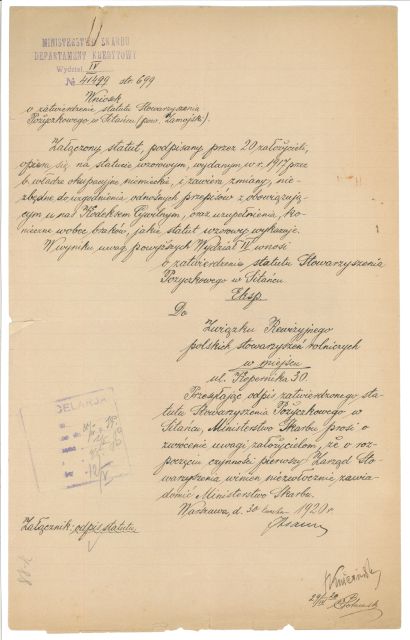 MINISTERSTWO SKARBU
DEPARTAMENT KREDYTOWY
Wydział IV
№ 41499 str. 699
Wniosek
o zatwierdzenie statutu Stowarzyszenia
Pożyczkowego w Sitańcu (pow. Zamojski).
Załączony statut, podpisany przez 20 założycieli,
opiera się na statucie wzorowym, wydanym w r. 1917 przez
b. władze okupacyjne niemieckie, i zawiera zmiany, nie-
zbędne do uzgodnienia odnośnych przepisów z obowiązują-
cym u nas Kodeksem Cywilnym, oraz uzupełnienia, ko-
nieczne wobec braków, jakie statut wzorowy wykazuje.
W wyniku uwag powyższych Wydział IV wnosi
o zatwierdzenie statutu Stowarzyszenia
Pożyczkowego w Sitańcu
Eksp.
Do
Związku Rewizyjnego
polskich stowarzyszeń rolniczych
w miejscu
ul. Kopernika 30.
Przesyłając odpis zatwierdzonego sta-
tutu Stowarzyszenia Pożyczkowego w
Sitańcu, Ministerstwo Skarbu prosi o
zwrócenie uwagi założycielom, że o roz-
poczęciu czynności pierwszy Zarząd Sto-
warzyszenia winien niezwłocznie zawia-
domić Ministerstwo Skarbu.
Warszawa, d. 30 1920 r.
Załącznik: odpis statutu